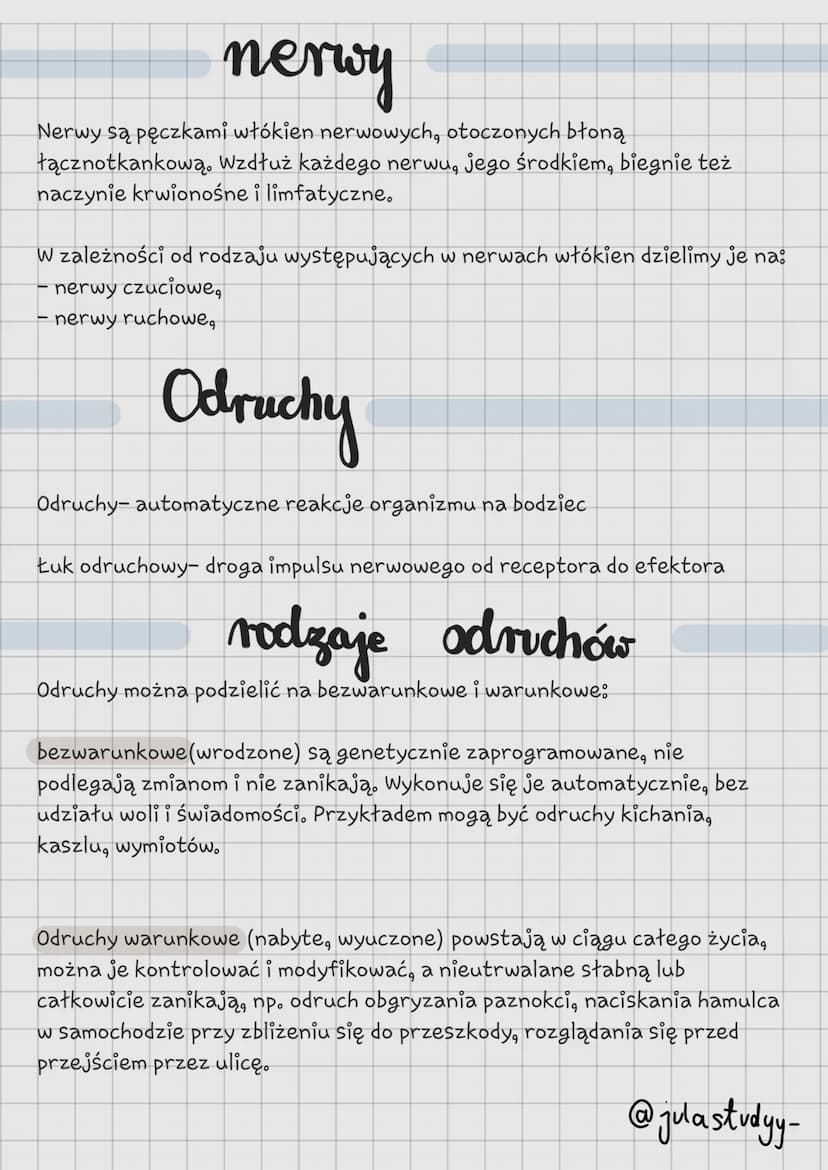 nerwy
Nerwy są pęczkami włókien nerwowych, otoczonych błoną
łącznotkankową. Wzdłuż każdego nerwu, jego środkiem, biegnie też
naczynie krwionośne i limfatyczne.
W zależności od rodzaju występujących w nerwach włókien dzielimy je na:
- nerwy czuciowe,
- nerwy ruchowe,
Odruchy
Odruchy- automatyczne reakcje organizmu na bodziec
Łuk odruchowy- droga impulsu nerwowego od receptora do efektora
rodzaje odruchów
Odruchy można podzielić na bezwarunkowe i warunkowe:
bezwarunkowe(wrodzone) są genetycznie zaprogramowane, nie
podlegają zmianom i nie zanikają. Wykonuje się je automatycznie, bez
udziału woli i świadomości. Przykładem mogą być odruchy kichania,
kaszlu, wymiotów.
Odruchy warunkowe (nabyte, wyuczone) powstają w ciągu całego życia,
można je kontrolować i modyfikować, a nieutrwalane słabną lub
całkowicie zanikają, np. odruch obgryzania paznokci, naciskania hamulca
w samochodzie przy zbliżeniu się do przeszkody, rozglądania się przed
przejściem przez ulicę.
@julastudyy-